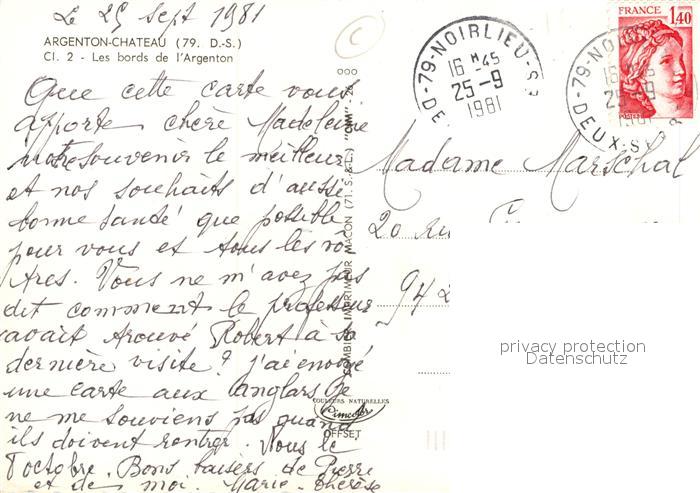 Le 25 Sept 1981
ARGENTON-CHATEAU (79. D.-S.)
Cl. 2 - Les bords de l'Argenton
Que cette carte vous
apporte chère Madeleine
notre souvenir le meilleur
et nos souhaits d'aussi
bonne santé que possible
pour vous et tous les vo
tres. Vous ne m'avez pas
dit comment le professeur
avait trouvé Robert à sa
dernière visite? j'ai envoyé
une carte aux Anglars Je
ne me souviens pas quand
ils doivent rentrer. Nous le
8 octobre. Bons baisers de Pierre
et de moi. Marie-Thérèse
COMBIER IMPRIMEUR MACON (71. S.-&-L.) "CIM"
COULEURS NATURELLES
Cimcolor
OFFSET
79-NOIRLIEU-S
DE
16 H 45
25-9
1981
79-NO
16 45
25-9
1981
DEUX-S
FRANCE
1,40
POSTES
Madame Marschal
20 Ru
94
privacy protection
Datenschutz